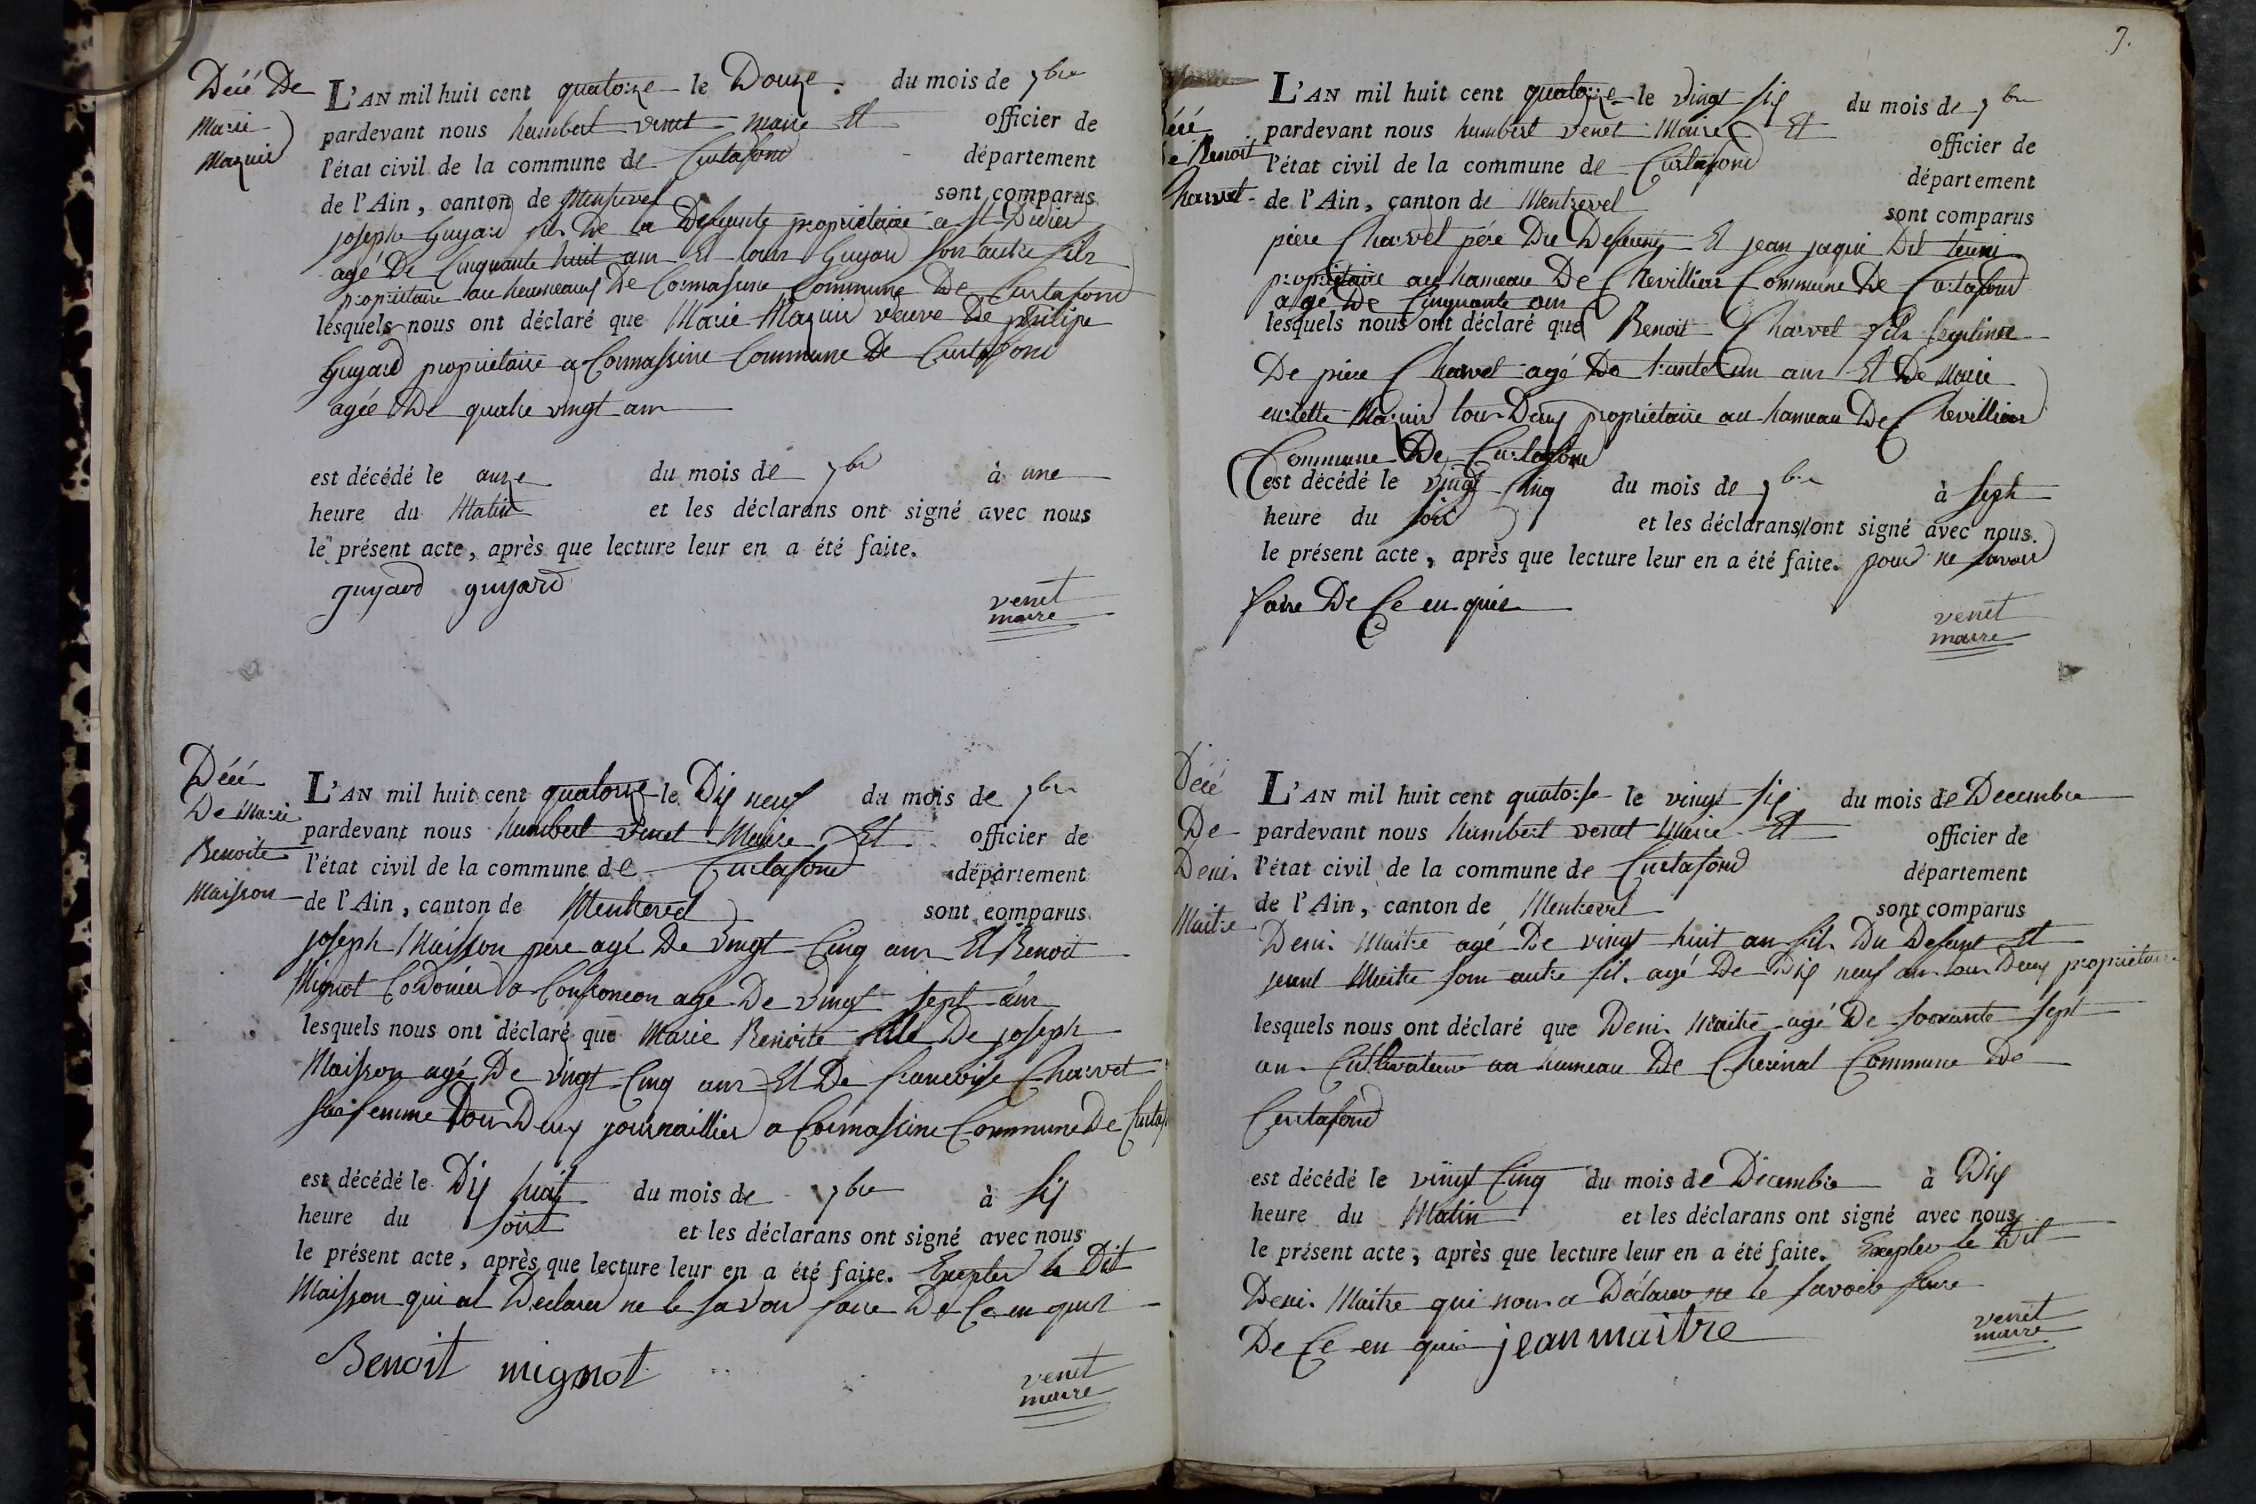 Décé De
Marie
Mazuir
L'AN mil huit cent quatorze le Douze du mois de 7bre
pardevant nous humbert venet maire Et officier de
l'état civil de la commune de Curtafond département
de l'Ain, canton de Montrevel sont comparus
joseph Guyard fils De la Defunte propriétaire a St Didier
agé De Cinquante huit ans Et Guyard son autre fils
propriétaire au hameaux De Cormassine Commune De Curtafond
lesquels nous ont déclaré que Marie Mazuir veuve De philipe
Guyard propriétaire a Cormassine Commune De Curtafond
agée De quatre vingt ans
est décédé le onze du mois de 7bre à une
heure du Matin et les déclarans ont signé avec nous
le présent acte, après que lecture leur en a été faite.
guyard guyard
venet
maire
Décé
De Marie
Benoite
Maisson
L'AN mil huit cent quatorze le Dix neuf du mois de 7bre
pardevant nous humbert venet Maire Et officier de
l'état civil de la commune de Curtafond département
de l'Ain, canton de Montrevel sont comparus
joseph Maisson pere agé De vingt Cinq ans Et Benoit
Mignot Cordonier a Confrancon agé De vingt sept ans
lesquels nous ont déclaré que Marie Benoite fille De joseph
Maisson agé De vingt Cinq ans Et De francoise Charvet
sa femme tous Deux journaillier a Cormassine Commune De Curtaf
est décédé le Dix huit du mois de 7bre à six
heure du soir et les déclarans ont signé avec nous
le présent acte, après que lecture leur en a été faite. Excepter le Dit
Maisson qui at Declarer ne le savoir faire De Ce en quis
Benoit mignot
venet
maire
7.
écé
e Benoit
Charvet
L'AN mil huit cent quatorze le vingt six du mois de 7bre
pardevant nous humbert venet Maire Et officier de
l'état civil de la commune de Curtafond département
de l'Ain, canton de Montrevel sont comparus
piere Charvet père Du Defunt Et jean jaque Dit
propriétaire au hameau De Chevillion Commune De Curtafond
agé De Cinquante ans
lesquels nous ont déclaré que Benoit Charvet fils legitime
De piere Charvet agé De trente un ans Et De Marie
Mazuir tous Deux propriétaire au hameau De Chevillion
Commune De Curtafond
est décédé le vingt Cinq du mois de 7bre à sept
heure du soir et les déclarans ont signé avec nous.
le présent acte, après que lecture leur en a été faite. pour ne savoir
faire De Ce en quis
venet
maire
Décé
De
Denis
Maitre
L'AN mil huit cent quatorze le vingt six du mois de Decembre
pardevant nous humbert venet Maire Et officier de
l'état civil de la commune de Curtafond département
de l'Ain, canton de Montrevel sont comparus
Denis Maitre agé De vingt huit an fils Du Defunt Et
jean Maitre son autre fils agé De Dix neuf ans tous Deux propriétaire
lesquels nous ont déclaré que Denis Maitre agé De soixante sept
ans Cultivateur au hameau De Commune De
Curtafond
est décédé le vingt Cinq du mois de Décembre à Dix
heure du Matin et les déclarans ont signé avec nous
le présent acte, après que lecture leur en a été faite. Excepter le Dit
Denis Maitre qui nous a Déclarer ne le savoir faire
De Ce en quis jean maitre
venet
maire